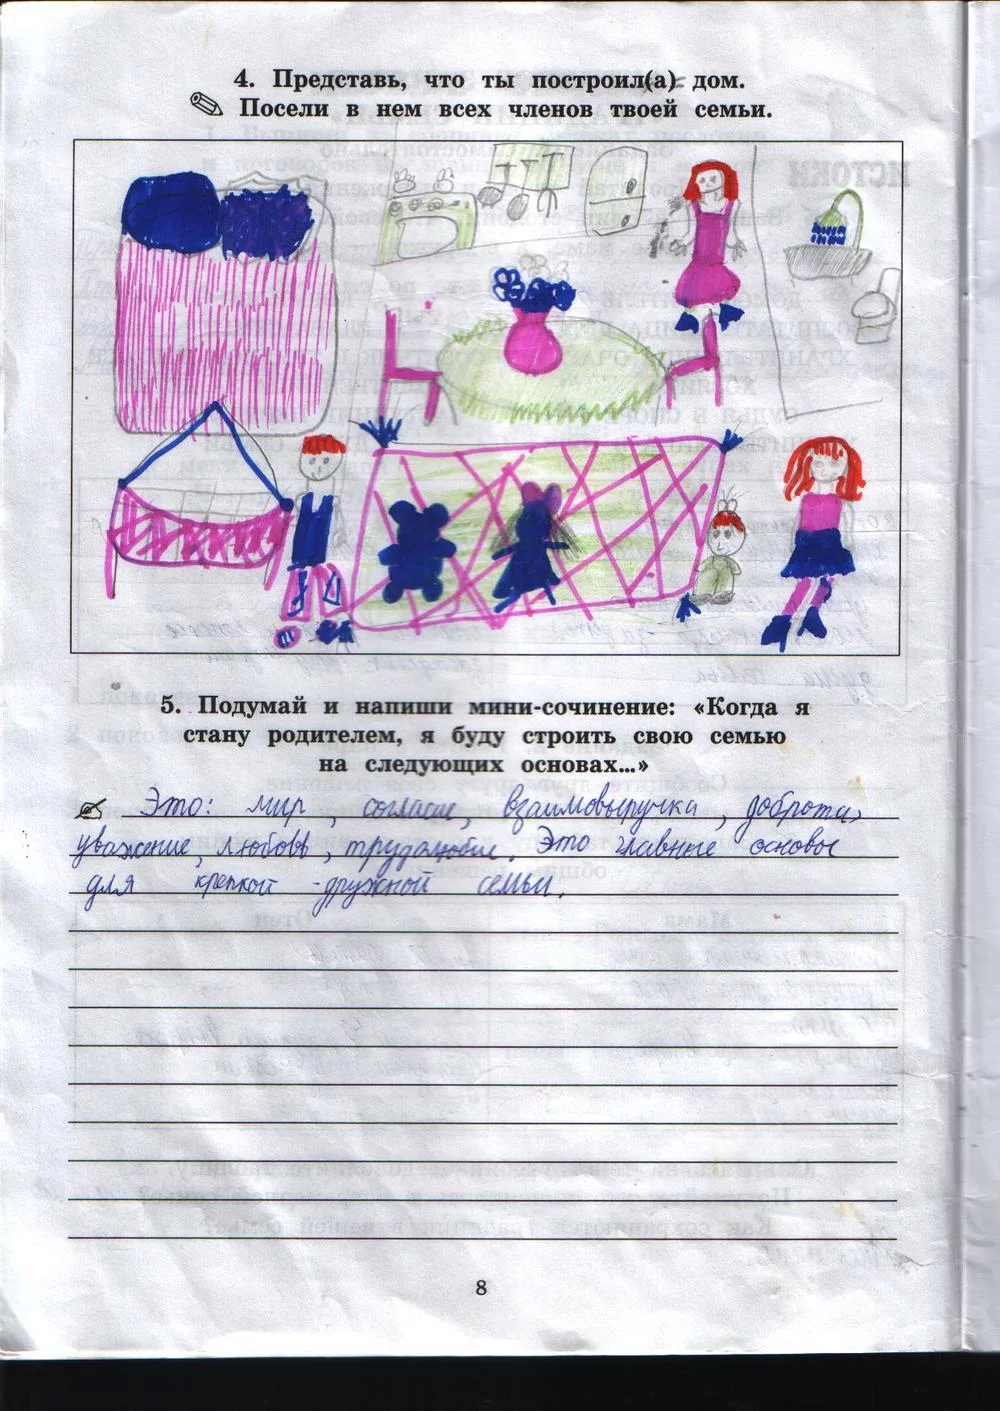 4. Представь, что ты построил(а) дом.
Посели в нем всех членов твоей семьи.
5. Подумай и напиши мини-сочинение: «Когда я
стану родителем, я буду строить свою семью
на следующих основах...»
Это: мир, согласие, взаимовыручка, доброта,
уважение, любовь, трудолюбие. Это главные основы
для крепкой дружной семьи.
8